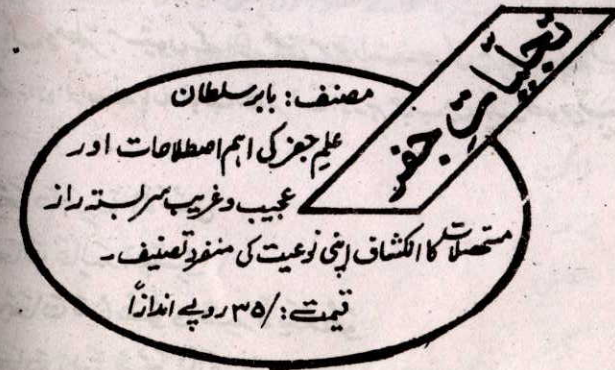 تجلیات جفر
مصنف: بابر سلطان
علم جفر کی اہم اصطلاحات اور
عجیب و غریب سربستہ راز
مستحصلات کا انکشاف اپنی نوعیت کی منفرد تصنیف۔
قیمت: /۳۵ روپے اندازاً